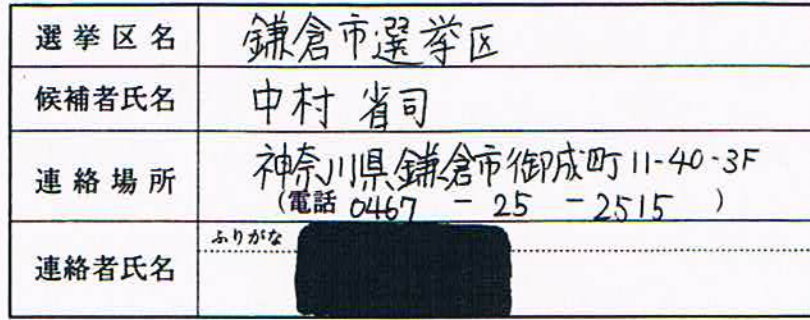 選挙区名 鎌倉市選挙区
候補者氏名 中村 省司
連絡場所 神奈川県鎌倉市御成町11-40-3F
(電話 0467 - 25 - 2515 )
ふりがな
連絡者氏名